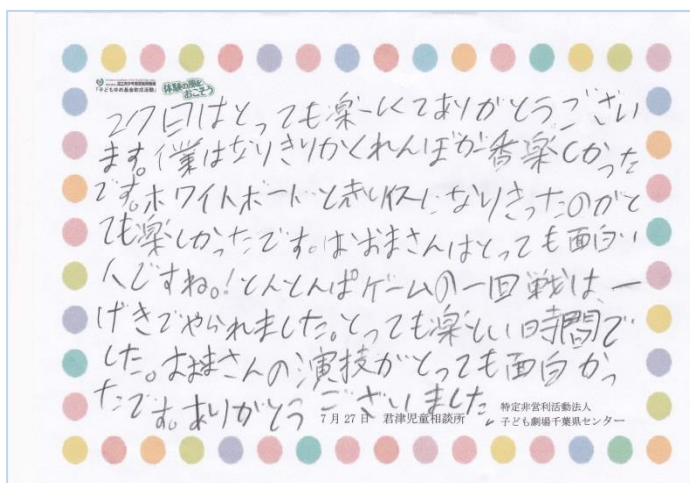 「子どもゆめ基金助成活動」
体験の風を
おこそう
27日はとっても楽しくてありがとうござい
ます。僕はなりきりかくれんぼが番楽しかった
です。ホワイトボードと赤いイスになりきったのがと
ても楽しかったです。はおまさんはとっても面白い
人ですね。!とんとんぱゲームの一回戦は、一
げきでやられました。とっても楽しい時間で
した。はおまさんの演技がとっても面白かっ
たです。ありがとうございました
7月27日 君津児童相談所
特定非営利活動法人
子ども劇場千葉県センター